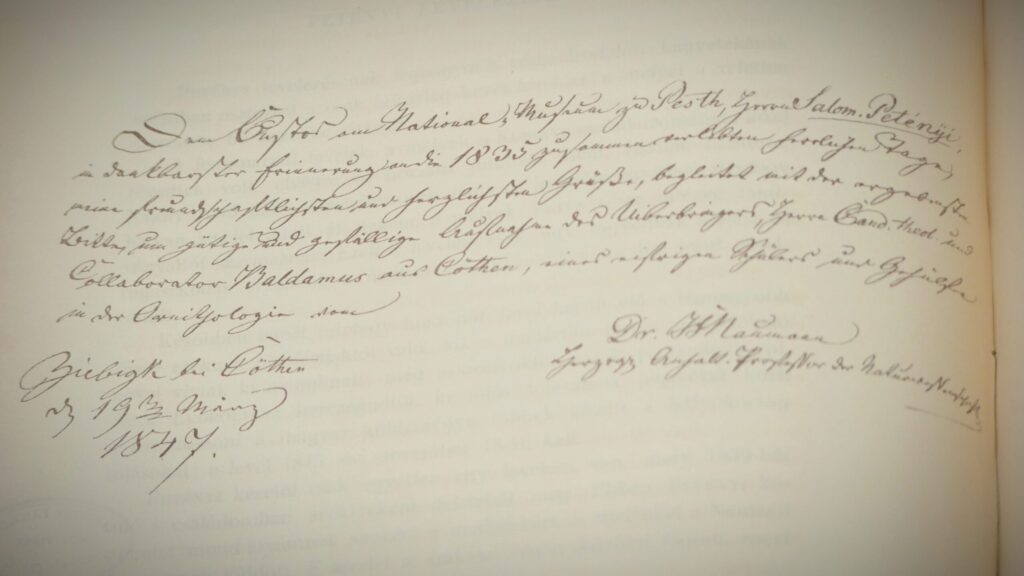 Dem Custos am National-Museum zu Pesth, Herrn Salom. Petényi,
in dankbarster Erinnerung an die 1835 zusammen verlebten herrlichen Tage,
meine freundschaftlichsten und herzlichsten Grüße, begleitet mit der ergebensten
Bitte, um gütige und gefällige Aufnahme des Ueberbringers, Herrn Cand. theol. und
Collaborator Baldamus aus Cöthen, eines eifrigen Schülers und Gehülfen
in der Ornithologie vom
Dr. Naumann
Herzogl. Anhalt. Professor der Naturwissenschaft
Ziebigk bei Cöthen
19 März
1847.